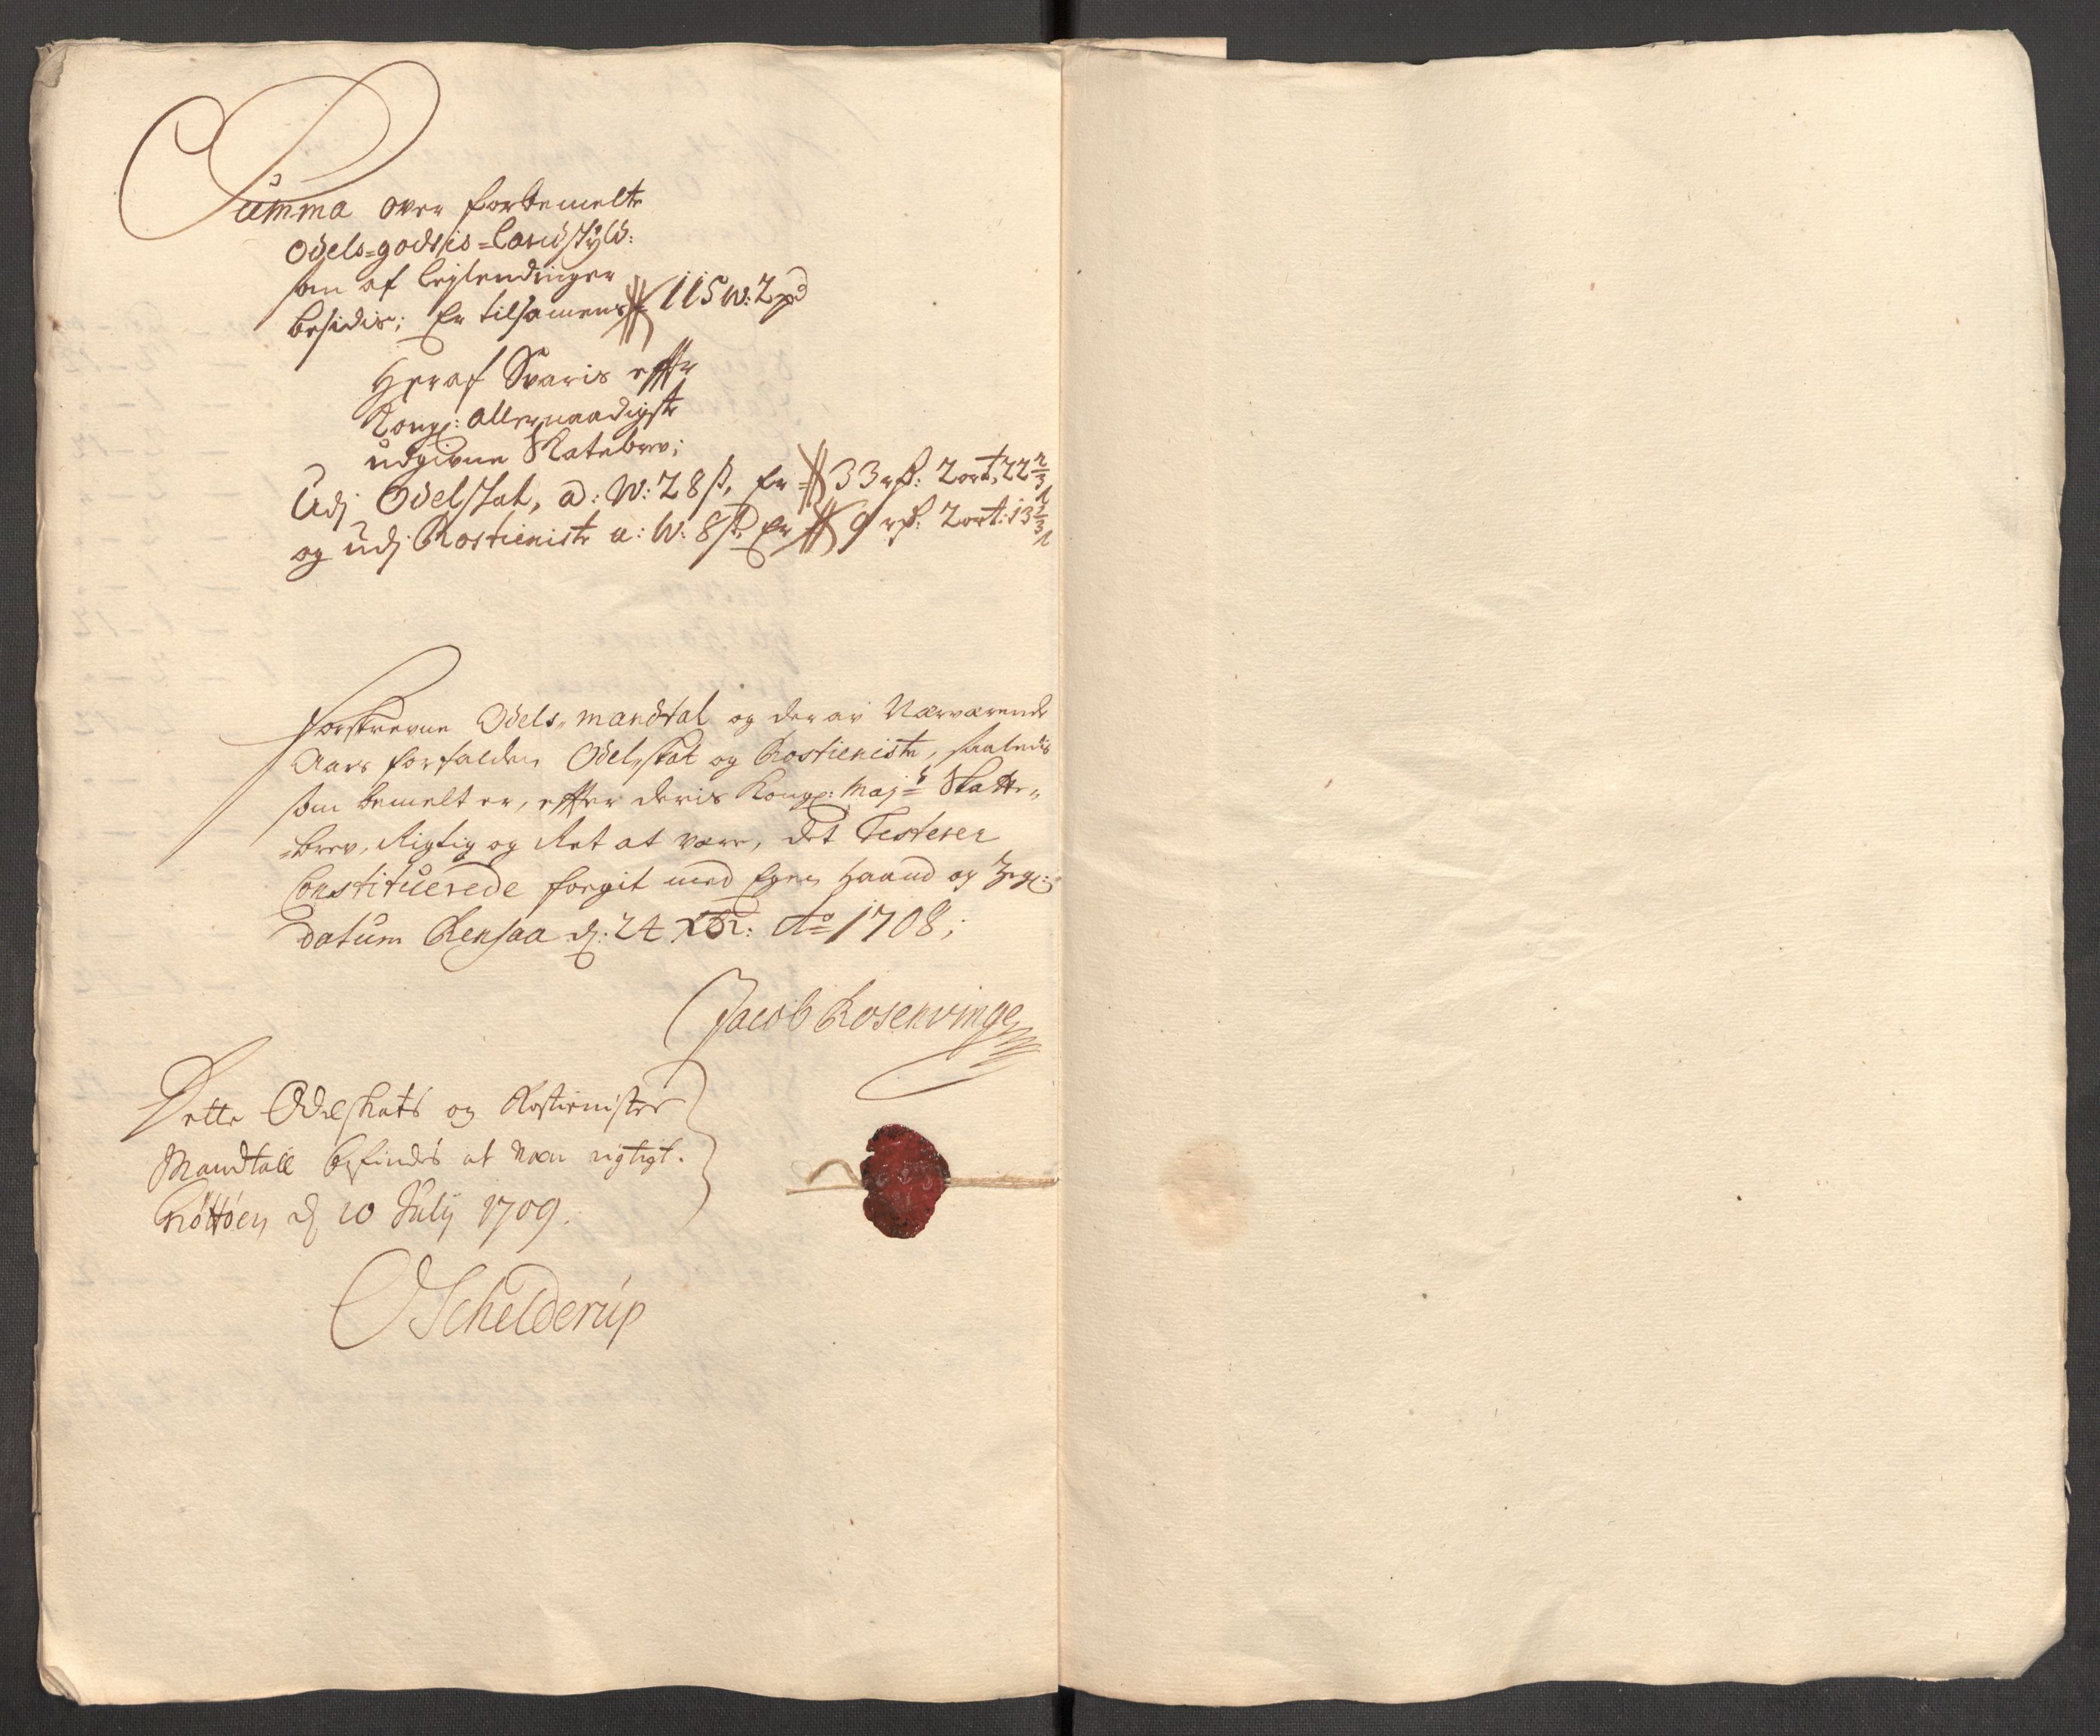 Summa over forbemelte
Odels-godsis-Landskyld:
som af leylendinger
besidis; Er tilsamens 115 W: 2 pd
Heraf Svaris effter
Kongl: allernaadigste
udgivne Skatebrev;
Udj Odelskat, a: W: 28 s, Er 33 rd: 2 ort, 22 2/3
og udj Rostieniste a: W: 8 s, Er 9 rd: 2 ort: 13 1/3
Forskrevne Odels-mandtal og der av Nærværende
Aars forfalden Odelskat og Rostieniste, saaledis
som bemelt er, effter deris Kongl: Maj:ts Skatte-
-brev, Rigtig og Ret at være, det Testerer
Constituerede fogit med Egen haand og Zegl:
datum Rensaa d: 24 Xbr: Ao 1708;
Jacob Rosenvinge
Dette Odelskats og Rostienistes
Mandtall befindes at være rigtigt.
d 10 July 1709.
O Schelderup